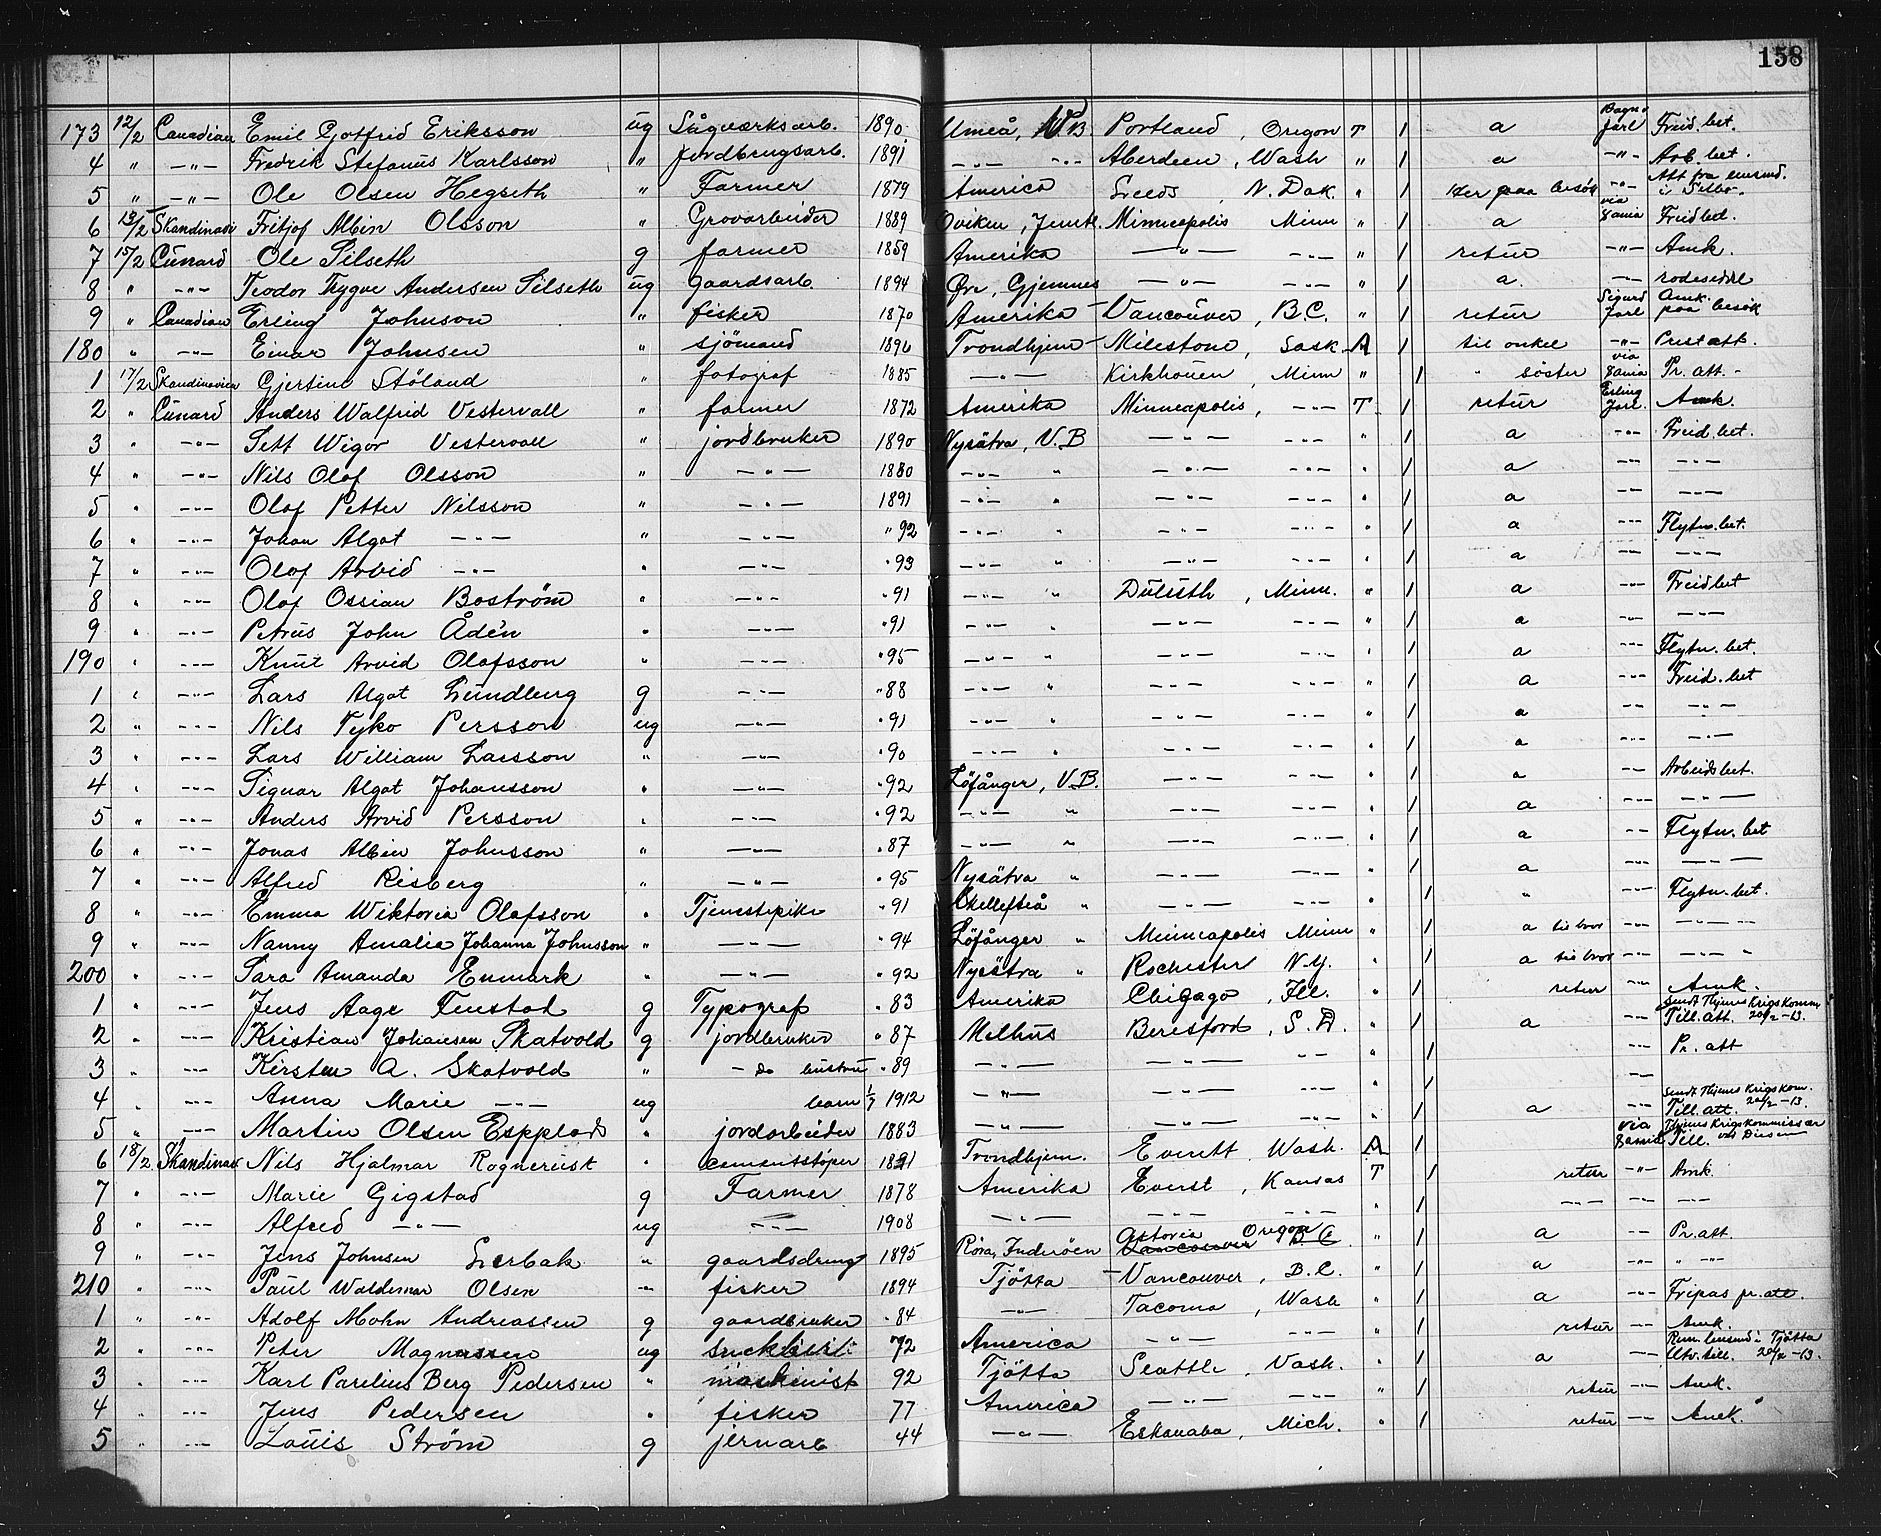 158
173 12/2 Canadian Emil Gotfrid Eriksson ug Sågverksarb. 1890 Umeå, VB Portland, Oregon T 1 a Jarl Freid. bet.
4 " -"- Fredrik Stefanus Karlsson " Jordbrugsarb. 1891 -"- -"- Aberdeen, Wash " 1 a -"- Arb. bet.
5 " -"- Ole Olsen Hegseth " Farmer 1879 America Leeds, N. Dak. " 1 her paa besök -"- Att fra i Selbo.
6 13/2 Skandinav Fritjof Albin Olsson " Grovarbeider 1889 Oviken, Jemtl. Minneapolis Minn " 1 a via Freidbet.
7 15/2 Cunard Ole Silseth g farmer 1859 Amerika -"- -"- " 1 retur -"- Amk.
8 " -"- Teodor Trygve Andersen Silseth ug Gaardsarb. 1894 Øre, Gjemnes -"- -"- " 1 a. -"- rodeseddel
9 " Canadian Erling Johnson " fisker 1870 Amerika Vancouver, B.C. " 1 retur Sigurd Jarl Amk. paa besök
180 " -"- Einar Johnsen " sjömand 1896 Trondhjem Milestone, Sask. A 1 til onkel -"- Prestatt.
1 17/2 Skandinavien Gjertine Stöland " fotograf 1885 -"- Kirkhoven, Minn " 1 " söster via Pr. att.
2 " Cunard Anders Walfrid Vestervall " farmer 1872 Amerika Minneapolis, -"- T 1 retur Erling Jarl. Amk.
3 " -"- Sett Wigor Vestervall " jordbruker 1890 Nysätra, V.B -"- -"- " 1 a -"- Freid. bet.
4 " -"- Nils Olof Olsson " -"- 1880 -"- " -"- -"- " 1 a -"- -"-
5 " -"- Olof Petter Nilsson " -"- 1891 -"- " -"- -"- " 1 a -"- -"-
6 " -"- Johan Algot -"- " -"- " 92 -"- " -"- -"- " 1 a -"- Flytn. bet.
7 " -"- Olof Arvid -"- " -"- " 93 -"- " -"- -"- " 1 a -"- -"-
8 " -"- Olof Ossian Boström " -"- " 91 -"- " Duluth, Minn. " 1 a -"- Freidbet
9 " -"- Petrus John Ådén " -"- " 91 -"- " -"- -"- " 1 a -"- -"-
190 " -"- Knut Arvid Olofsson " -"- " 95 -"- " -"- -"- " 1 a -"- Flytn. bet.
1 " -"- Lars Algot Lundberg g -"- " 88 -"- " -"- -"- " 1 a -"- Freid. bet
2 " -"- Nils Tyko Persson ug -"- " 91 -"- " -"- -"- " 1 a -"- -"-
3 " -"- Lars William Larsson " -"- " 90 -"- " -"- -"- " 1 a -"- -"-
4 " -"- Signar Algot Johansson " -"- " 92 Löfånger, V.B. -"- -"- " 1 a -"- Arbeidsbet.
5 " -"- Anders Arvid Persson " -"- " 92 -"- " -"- -"- " 1 a -"- -"-
6 " -"- Jonas Albin Johnsson " -"- " 87 -"- " -"- -"- " 1 a -"- Flytn. bet
7 " -"- Alfred Risberg " -"- " 95 Nysätra " -"- -"- " 1 a -"- -"-
8 " -"- Emma Wiktoria Olofsson " Tjenestepike " 91 Skellefteå " -"- -"- " 1 " -"- Flytn. bet.
9 " -"- Nanny Amalia Johanna Johnsson " -"- " 94 Löfånger " Minneapolis Minn " 1 a til bror -"- -"-
200 " -"- Sara Amanda Enmark " -"- " 92 Nysätra " Rochester N.Y. " 1 a til bror -"- -"-
1 " -"- Jens Aage Finstad g Typograf " 83 Amerika Chicago, Ill. " 1 retur -"- Amk.
2 " -"- Kristian Johansen Skatvold g jordbruker " 87 Melhus Beresford, S.D. " 1 a -"- Sendt Thjems Krigskomm. Till. att. 20/2-13.
3 " -"- Kirsten A. Skatvold " - do hustru " 89 -"- -"- -"- " 1 -"- Pr. att
4 " -"- Anna Marie -"- ug barn 1/7 1912 -"- -"- " 1 -"-
5 " -"- Martin Olsen Espplads " jordarbeider 1883 -"- -"- -"- " 1 a -"- Sendt Thjems Krigskom. Till. att. 20/2-13.
6 18/2 Skandinav Nils Hjalmar Rognerust " cementstöper 1891 Trondhjem. Everett, Wash. A 1 via Thjems Krigskommissær Till.
7 " -"- Marie Gigstad g Farmer 1878 Amerika Everst, Kansas T 1 retur -"- Amk.
8 " -"- Alfred -"- ug -"- 1908 -"- -"- -"- " 1 -"- -"- -"-
9 " -"- Jens Johnsen Lerbak " gaardsdreng 1895 Röra, Inderöen Astoria Oregon Vancouver B.C. " 1 a -"- Pr. att.
210 " -"- Paul Waldemar Olsen " fisker 1894 Tjötta Vancouver, B.C. " 1 a -"- -"-
1 " -"- Adolf Mohn Andreassen g gaardbruker " 84 -"- Tacoma, Wash " 1 a -"- Fripas pr. att.
2 " -"- Peter Magnussen ug 72 America -"- -"- " 1 retur -"- Amk.
3 " -"- Karl Parelius Berg Pedersen " maskinist 92 Tjötta Seattle, Wash. " 1 a -"- lensmd i Tjötta Utv. till. 20/2-13.
4 " -"- Jens Pedersen " fisker 77 America -"- -"- " 1 retur -"- Amk.
5 " -"- Louis Ström g jernarb 44 -"- Eskanaba, Mich. " 1 retur -"- Amk.